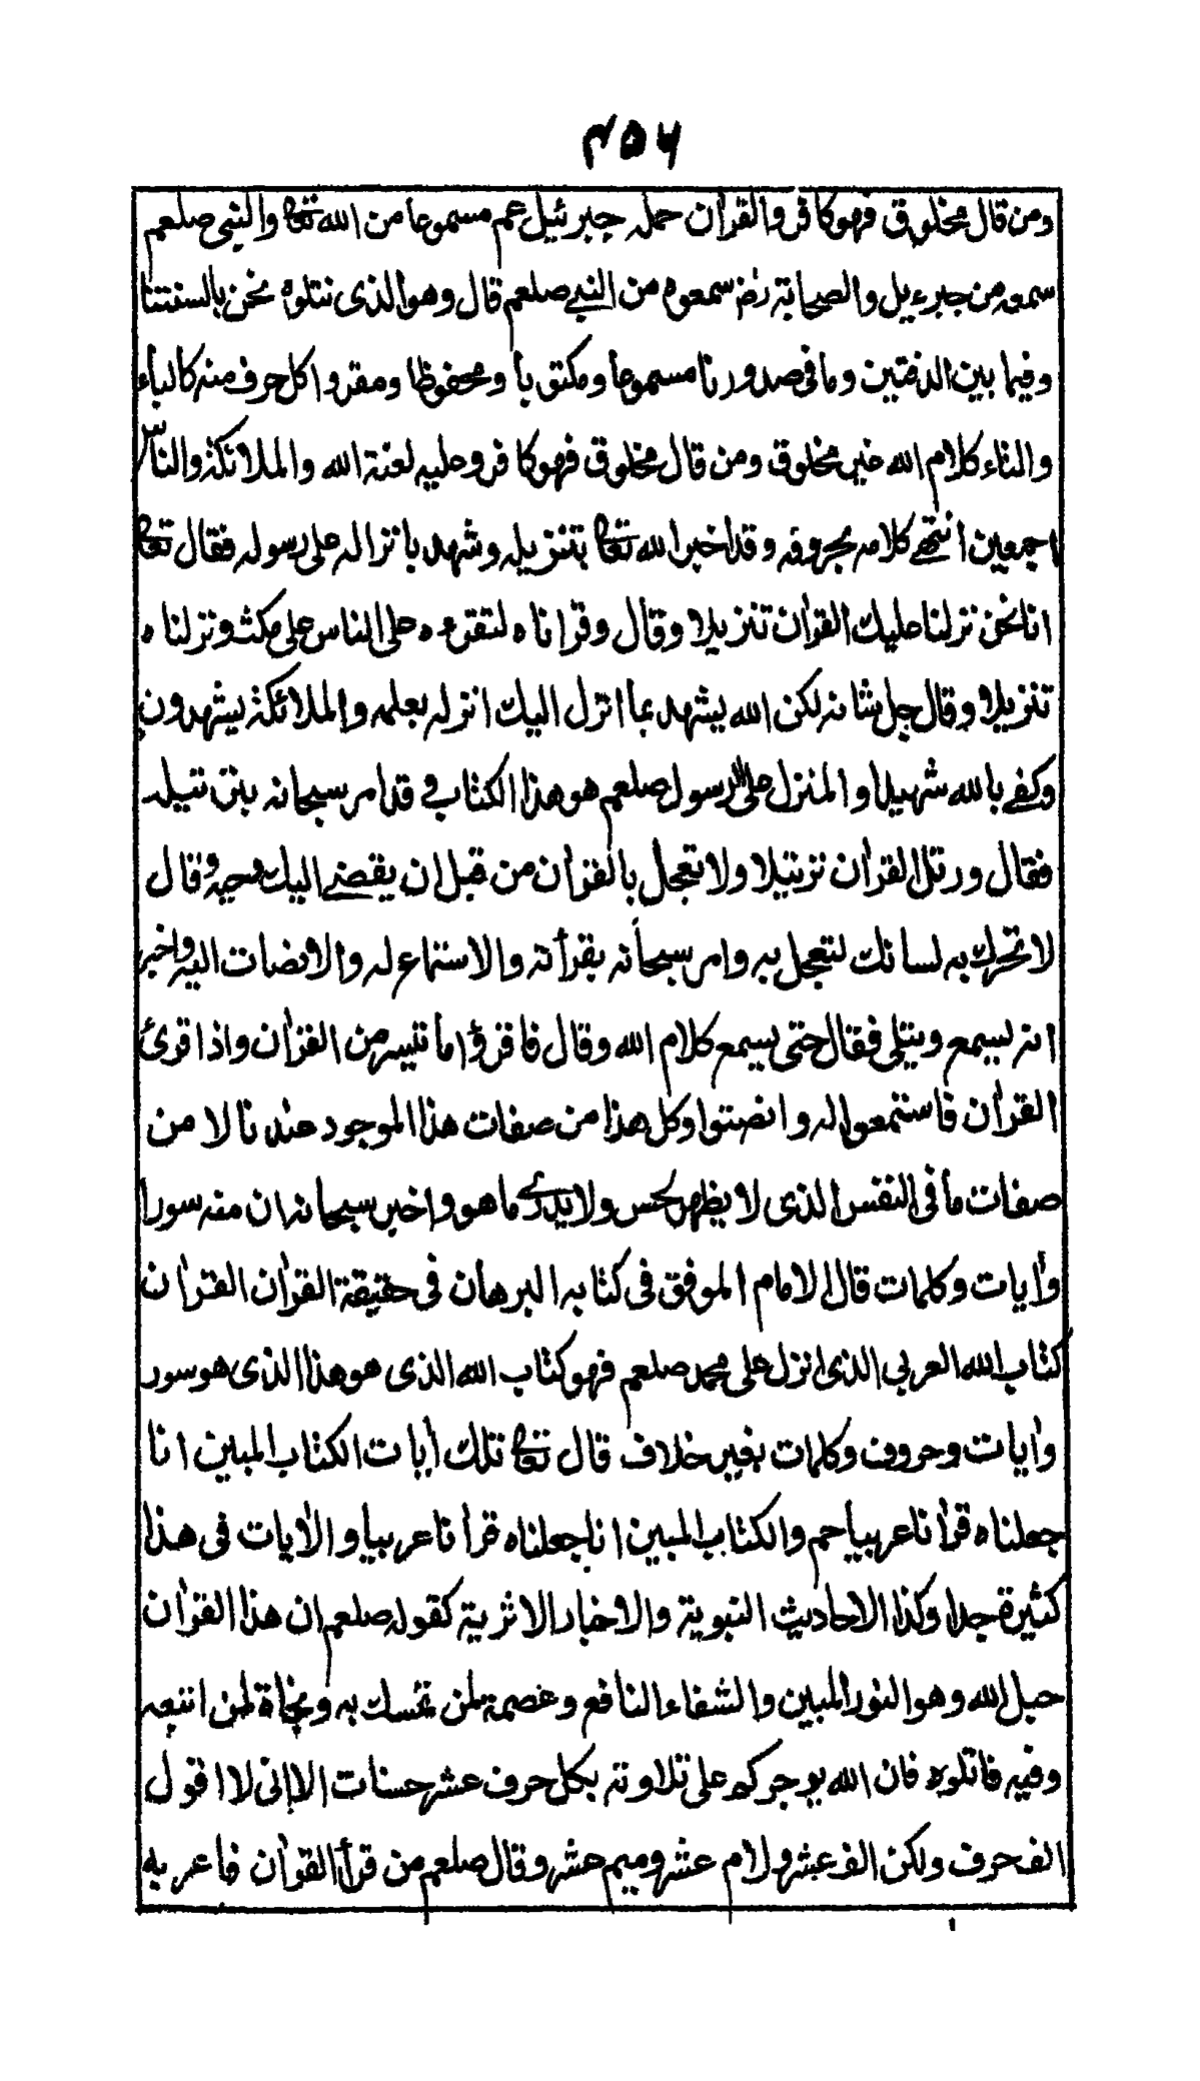 ۴۵۶
ومن قال مخلوق فهو كافر والقرأن حمله جبرئيل عم مسموعا من الله تعا والنبى صلعم
سمعه من جبرءيل والصحابة رض سمعوه من النبي صلعم قال وهو الذى نتلوه نحن بالسنتنا
وفيما بين الدفتين وما فى صدورنا مسموعا ومكتوبا ومحفوظا ومقروا كل حرف منه كالباء
والتاء كلام الله غير مخلوق ومن قال مخلوق فهو كافر وعليه لعنة الله والملائكة والناس
اجمعين انتهى كلامه بحروفه وقد اخبر الله تعا بتنزيله وشهد بانزاله على رسوله فقال تعا
انا نحن نزلنا عليك القرأن تنزيلا وقال وقرانا ه لتقرءه على الناس على مكث ونزلناه
تنزيلا وقال جل شانه لكن الله يشهد بما انزل اليك انزله بعلمه والملائكة يشهدون
وكفے بالله شهيدا والمنزل على الرسول صلعم هو هذا الكتاب وقد امر سبحانه بترتيله
فقال ورتل القرأن ترتيلا ولا تعجل بالقرأن من قبل ان يقضے اليك وحيه وقال
لا تحرك به لسانك لتعجل به وامر سبحانه بقرأته والاستماع له والانصات اليه واخبر
انه يسمع ويتلى فقال حتى يسمع كلام الله وقال فاقرؤا ما تيسر من القرأن واذا قرئ
القرأن فاستمعوا له وانصتوا وكل هذا من صفات هذا الموجود عندنا لا من
صفات ما فى النفس الذى لا يظهر لحس ولا يدرے ما هو واخبر سبحانه ان منه سورا
وأيات وكلمات قال الامام الموفق فى كتابه البرهان فى حقيقة القرأن القرأن
كتاب الله العربى الذى انزل على محمد صلعم فهو كتاب الله الذى هو هذا الذى هو سور
وأيات وحروف وكلمات بغير خلاف قال تعا تلك أيات الكتاب المبين انا
جعلناه قرأنا عربيا حم والكتاب المبين انا جعلناه قرأنا عربيا والأيات فى هذا
كثيرة جدا وكذا الاحاديث النبوية والاخبار الاثرية كقوله صلعم ان هذا القرأن
حبل الله وهو النور المبين والشفاء النافع وعصمة لمن تمسك به ونجاة لمن اتبعه
وفيه فاتلوه فان الله يوجركم على تلاوته بكل حرف عشر حسنات الا انى لا اقول
الف حرف ولكن الف عشر ولام عشر وميم عشر وقال صلعم من قرأ القرأن فاعربه